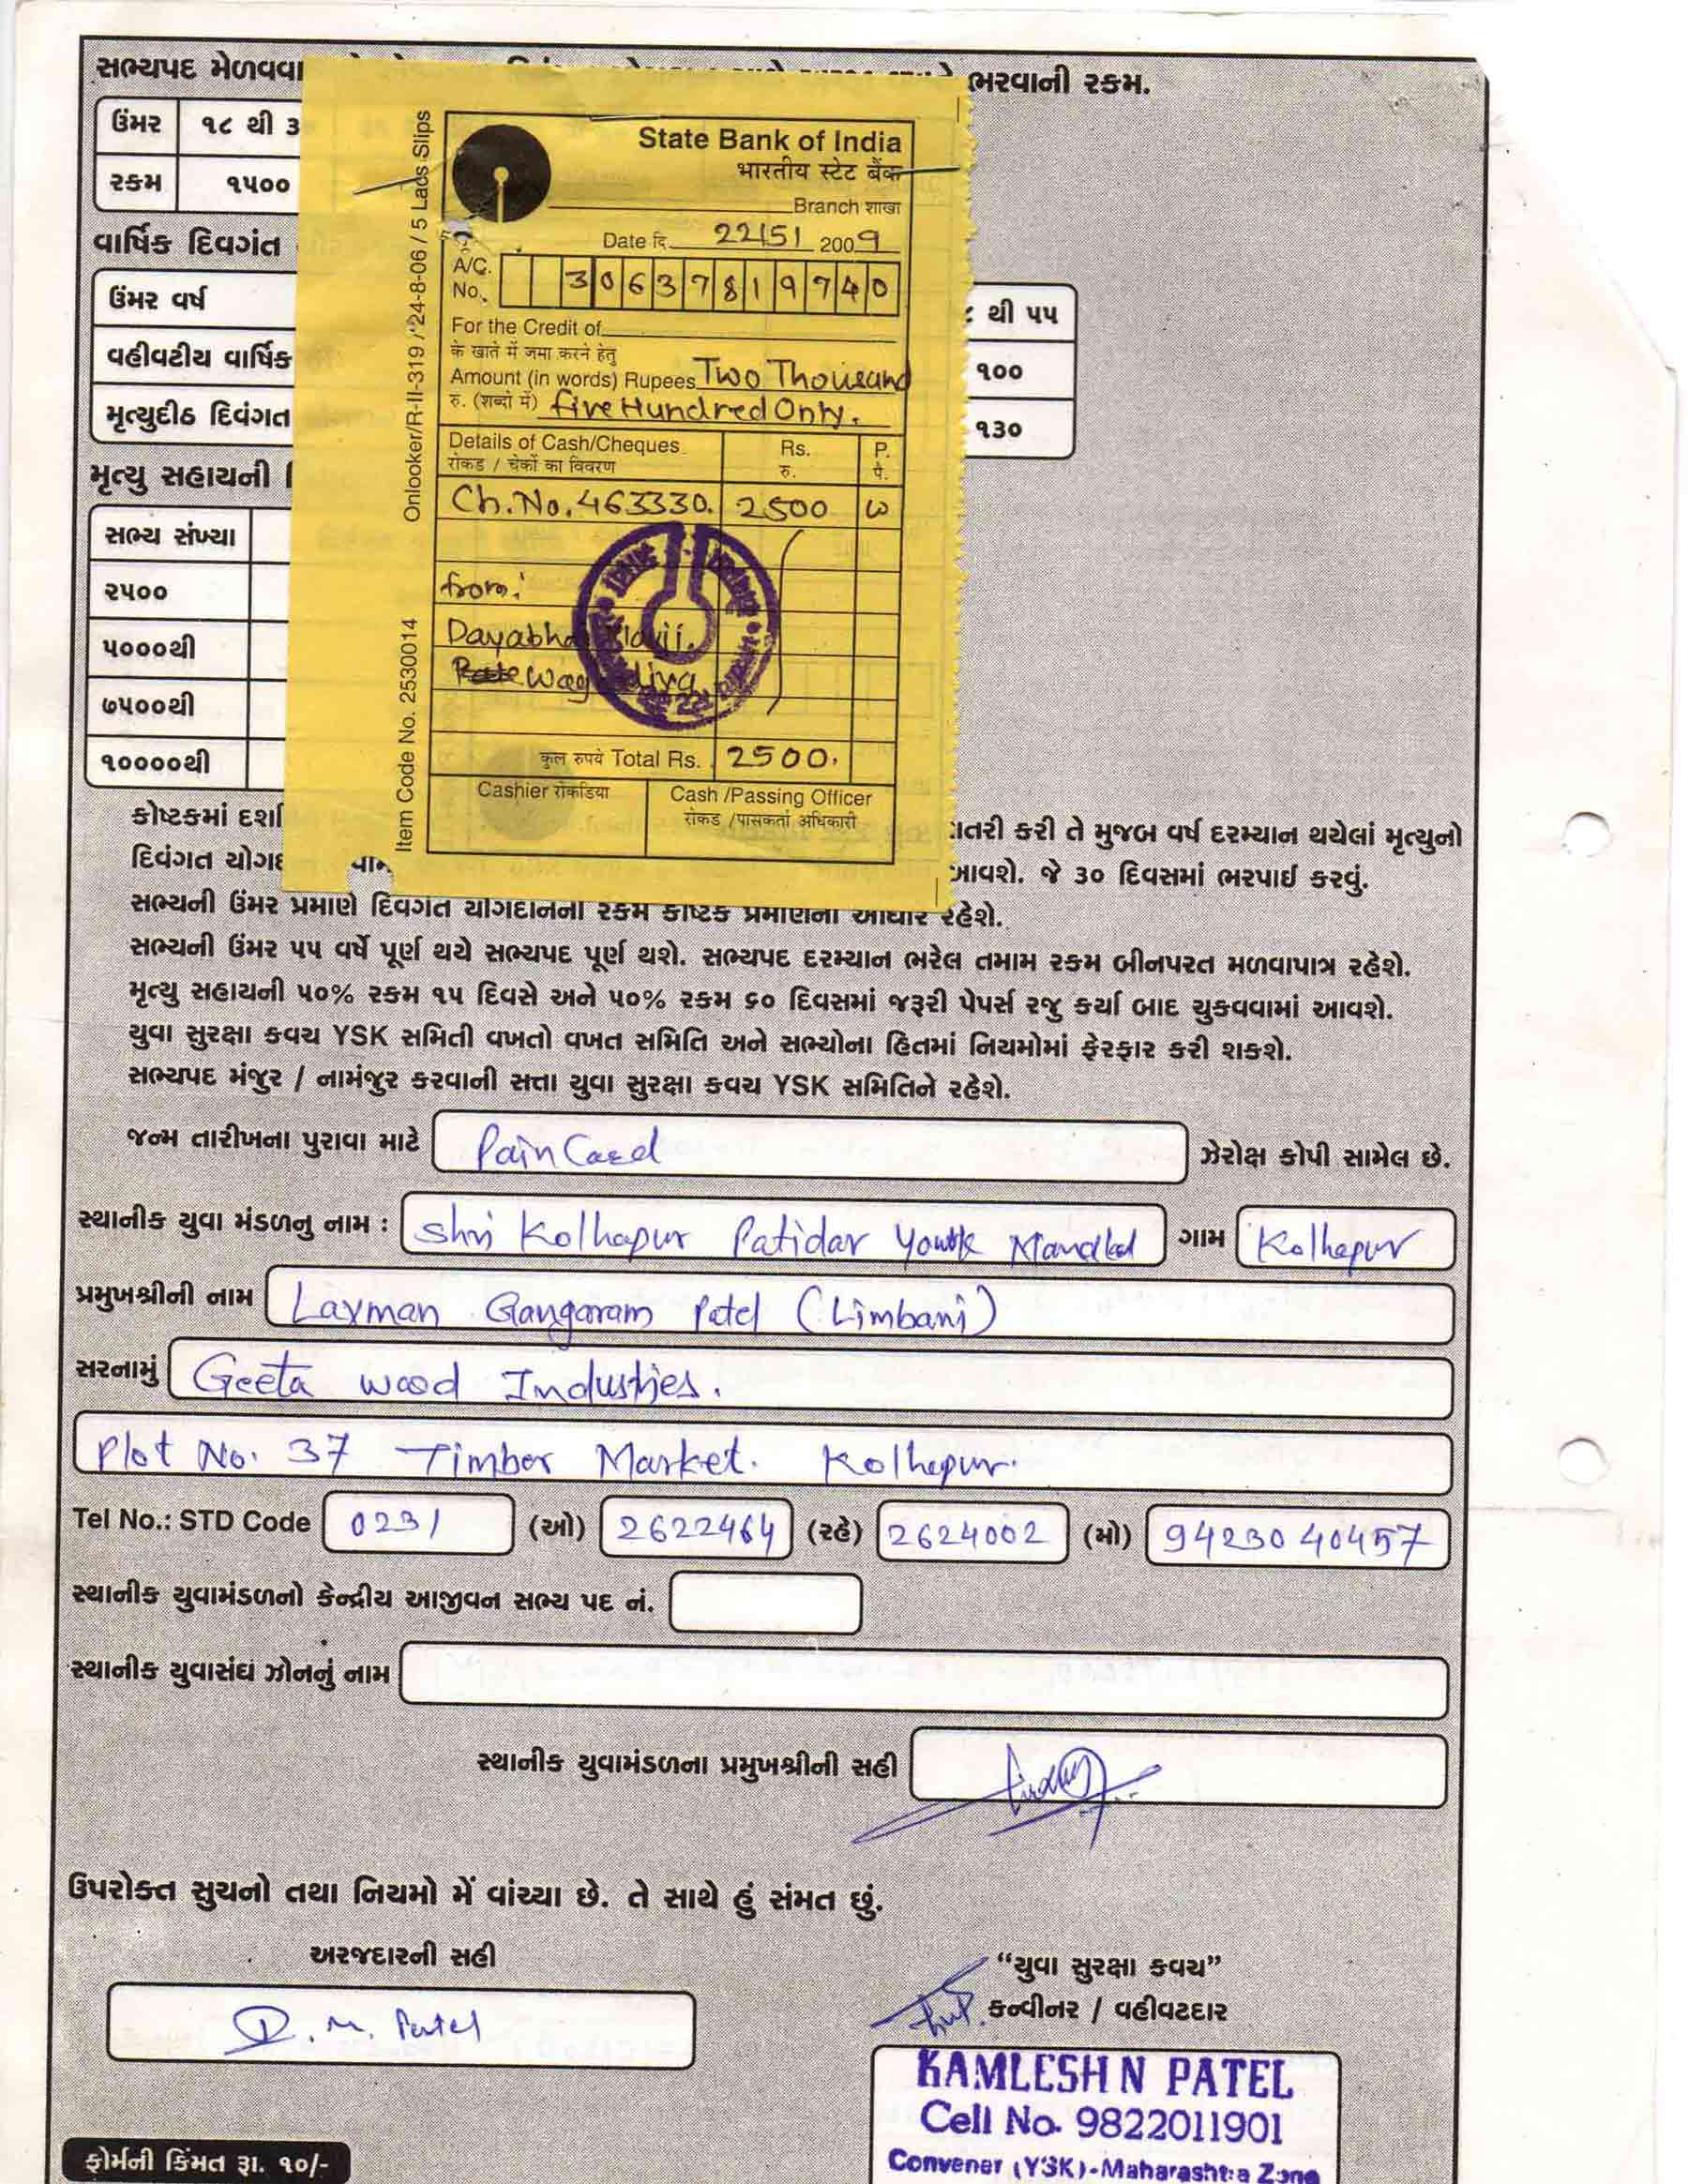 સભ્યપદ મેળવવા
ભરવાની રકમ.
ઉંમર ૧૮ થી ૩
રકમ ૧૫૦૦
વાર્ષિક દિવગંત
ઉંમર વર્ષ
થી ૫૫
વહીવટીય વાર્ષિક
૧૦૦
મૃત્યુદીઠ દિવંગત
૧૩૦
મૃત્યુ સહાયની
સભ્ય સંખ્યા
૨૫૦૦
૫૦૦૦થી
૭૫૦૦થી
૧૦૦૦૦થી
Onlooker/R-II-319 / 24-8-06 / 5 Lacs Slips
Item Code No. 2530014
State Bank of India
भारतीय स्टेट बैंक
Branch शाखा
Date दि. 22/5/ 2009
A/C. No. 30637819740
For the Credit of
के खाते में जमा करने हेतु
Amount (in words) Rupees Two Thousand
रु. (शब्दो में) five Hundred Only.
Details of Cash/Cheques Rs. P.
रोकड / चेकों का विवरण रु. पै.
Ch.No. 463330. 2500
from:
Dayabhai
कुल रुपये Total Rs. 2500.
Cashier रोकडिया Cash /Passing Officer
रोकड /पासकर्ता अधिकारी
કોષ્ટકમાં દર્શા
તરી કરી તે મુજબ વર્ષ દરમ્યાન થયેલાં મૃત્યુનો
દિવંગત યોગદ
આવશે. જે ૩૦ દિવસમાં ભરપાઈ કરવું.
સભ્યની ઉંમર પ્રમાણે દિવગંત યોગદાનની રકમ કોષ્ટક પ્રમાણેના આધારે રહેશે.
સભ્યની ઉંમર ૫૫ વર્ષે પૂર્ણ થયે સભ્યપદ પૂર્ણ થશે. સભ્યપદ દરમ્યાન ભરેલ તમામ રકમ બીનપરત મળવાપાત્ર રહેશે.
મૃત્યુ સહાયની ૫૦% રકમ ૧૫ દિવસે અને ૫૦% રકમ ૬૦ દિવસમાં જરૂરી પેપર્સ રજુ કર્યા બાદ ચુકવવામાં આવશે.
યુવા સુરક્ષા કવચ YSK સમિતી વખતો વખત સમિતિ અને સભ્યોના હિતમાં નિયમોમાં ફેરફાર કરી શકશે.
સભ્યપદ મંજુર / નામંજુર કરવાની સત્તા યુવા સુરક્ષા કવચ YSK સમિતિને રહેશે.
જન્મ તારીખના પુરાવા માટે Pain Card ઝેરોક્ષ કોપી સામેલ છે.
સ્થાનીક યુવા મંડળનુ નામ : Shri Kolhapur Patidar Youth Mandal ગામ Kolhapur
પ્રમુખશ્રીની નામ Laxman Gangaram Patel (Limbani)
સરનામું Geeta wood Industries.
Plot No. 37 Timber Market. Kolhapur.
Tel No.: STD Code 0231 (ઓ) 2622464 (રહે) 2624002 (મો) 9423040457
સ્થાનીક યુવામંડળનો કેન્દ્રીય આજીવન સભ્ય પદ નં.
સ્થાનીક યુવાસંઘ ઝોનનું નામ
સ્થાનીક યુવામંડળના પ્રમુખશ્રીની સહી
ઉપરોક્ત સુચનો તથા નિયમો મેં વાંચ્યા છે. તે સાથે હું સંમત છું.
અરજદારની સહી
D. M. Patel
“યુવા સુરક્ષા કવચ”
કન્વીનર / વહીવટદાર
KAMLESH N PATEL
Cell No. 9822011901
Convener (YSK)-Maharashtra Zone
ફોર્મની કિંમત રૂા. ૧૦/-